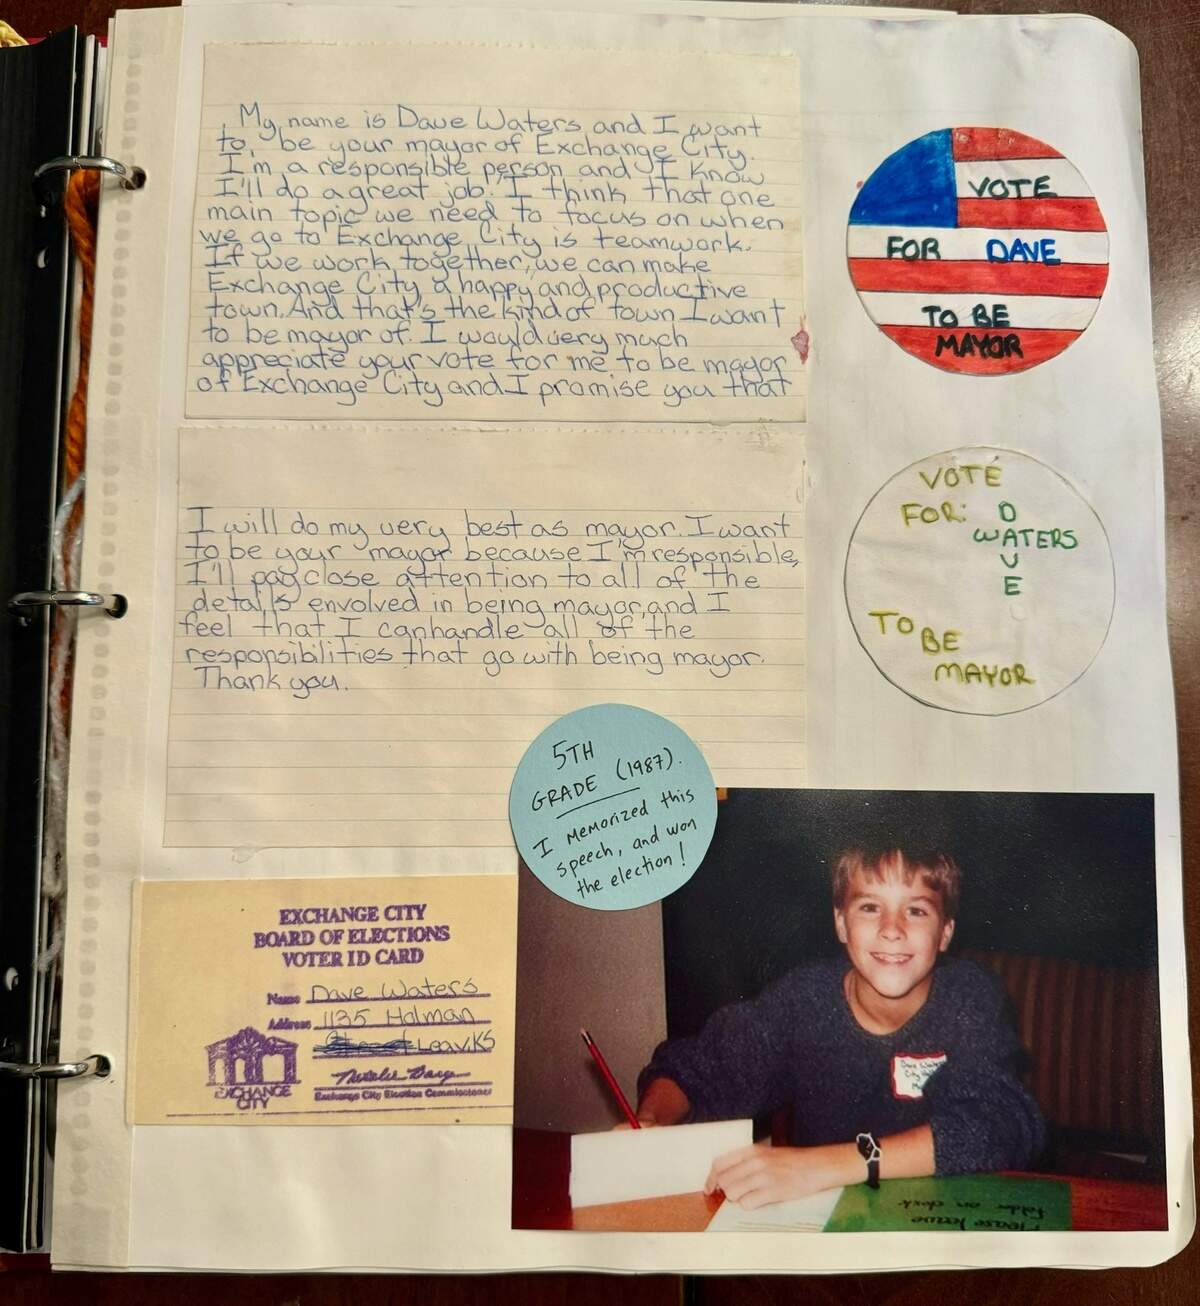 My name is Dave Waters, and I want
to, be your mayor of Exchange City.
I'm a responsible person and I know
I'll do a great job. I think that one
main topic we need to focus on when
we go to Exchange City is teamwork.
If we work together, we can make
Exchange City a happy and productive
town. And that's the kind of town I want
to be mayor of. I would very much
appreciate your vote for me to be mayor
of Exchange City and I promise you that
I will do my very best as mayor. I want
to be your mayor because I'm responsible,
I'll pay close attention to all of the
details envolved in being mayor, and I
feel that I can handle all of the
responsibilities that go with being mayor.
Thank you.
VOTE
FOR DAVE
TO BE
MAYOR
VOTE
FOR: D
WATERS
V
E
TO
BE
MAYOR
5TH
GRADE (1987).
I memorized this
speech, and won
the election!
EXCHANGE CITY
BOARD OF ELECTIONS
VOTER ID CARD
Name Dave Waters
Address 1135 Holman
Leav. KS
Exchange City Election Commissioner
EXCHANGE
CITY
Dave Waters
City
Please leave
folder on desk